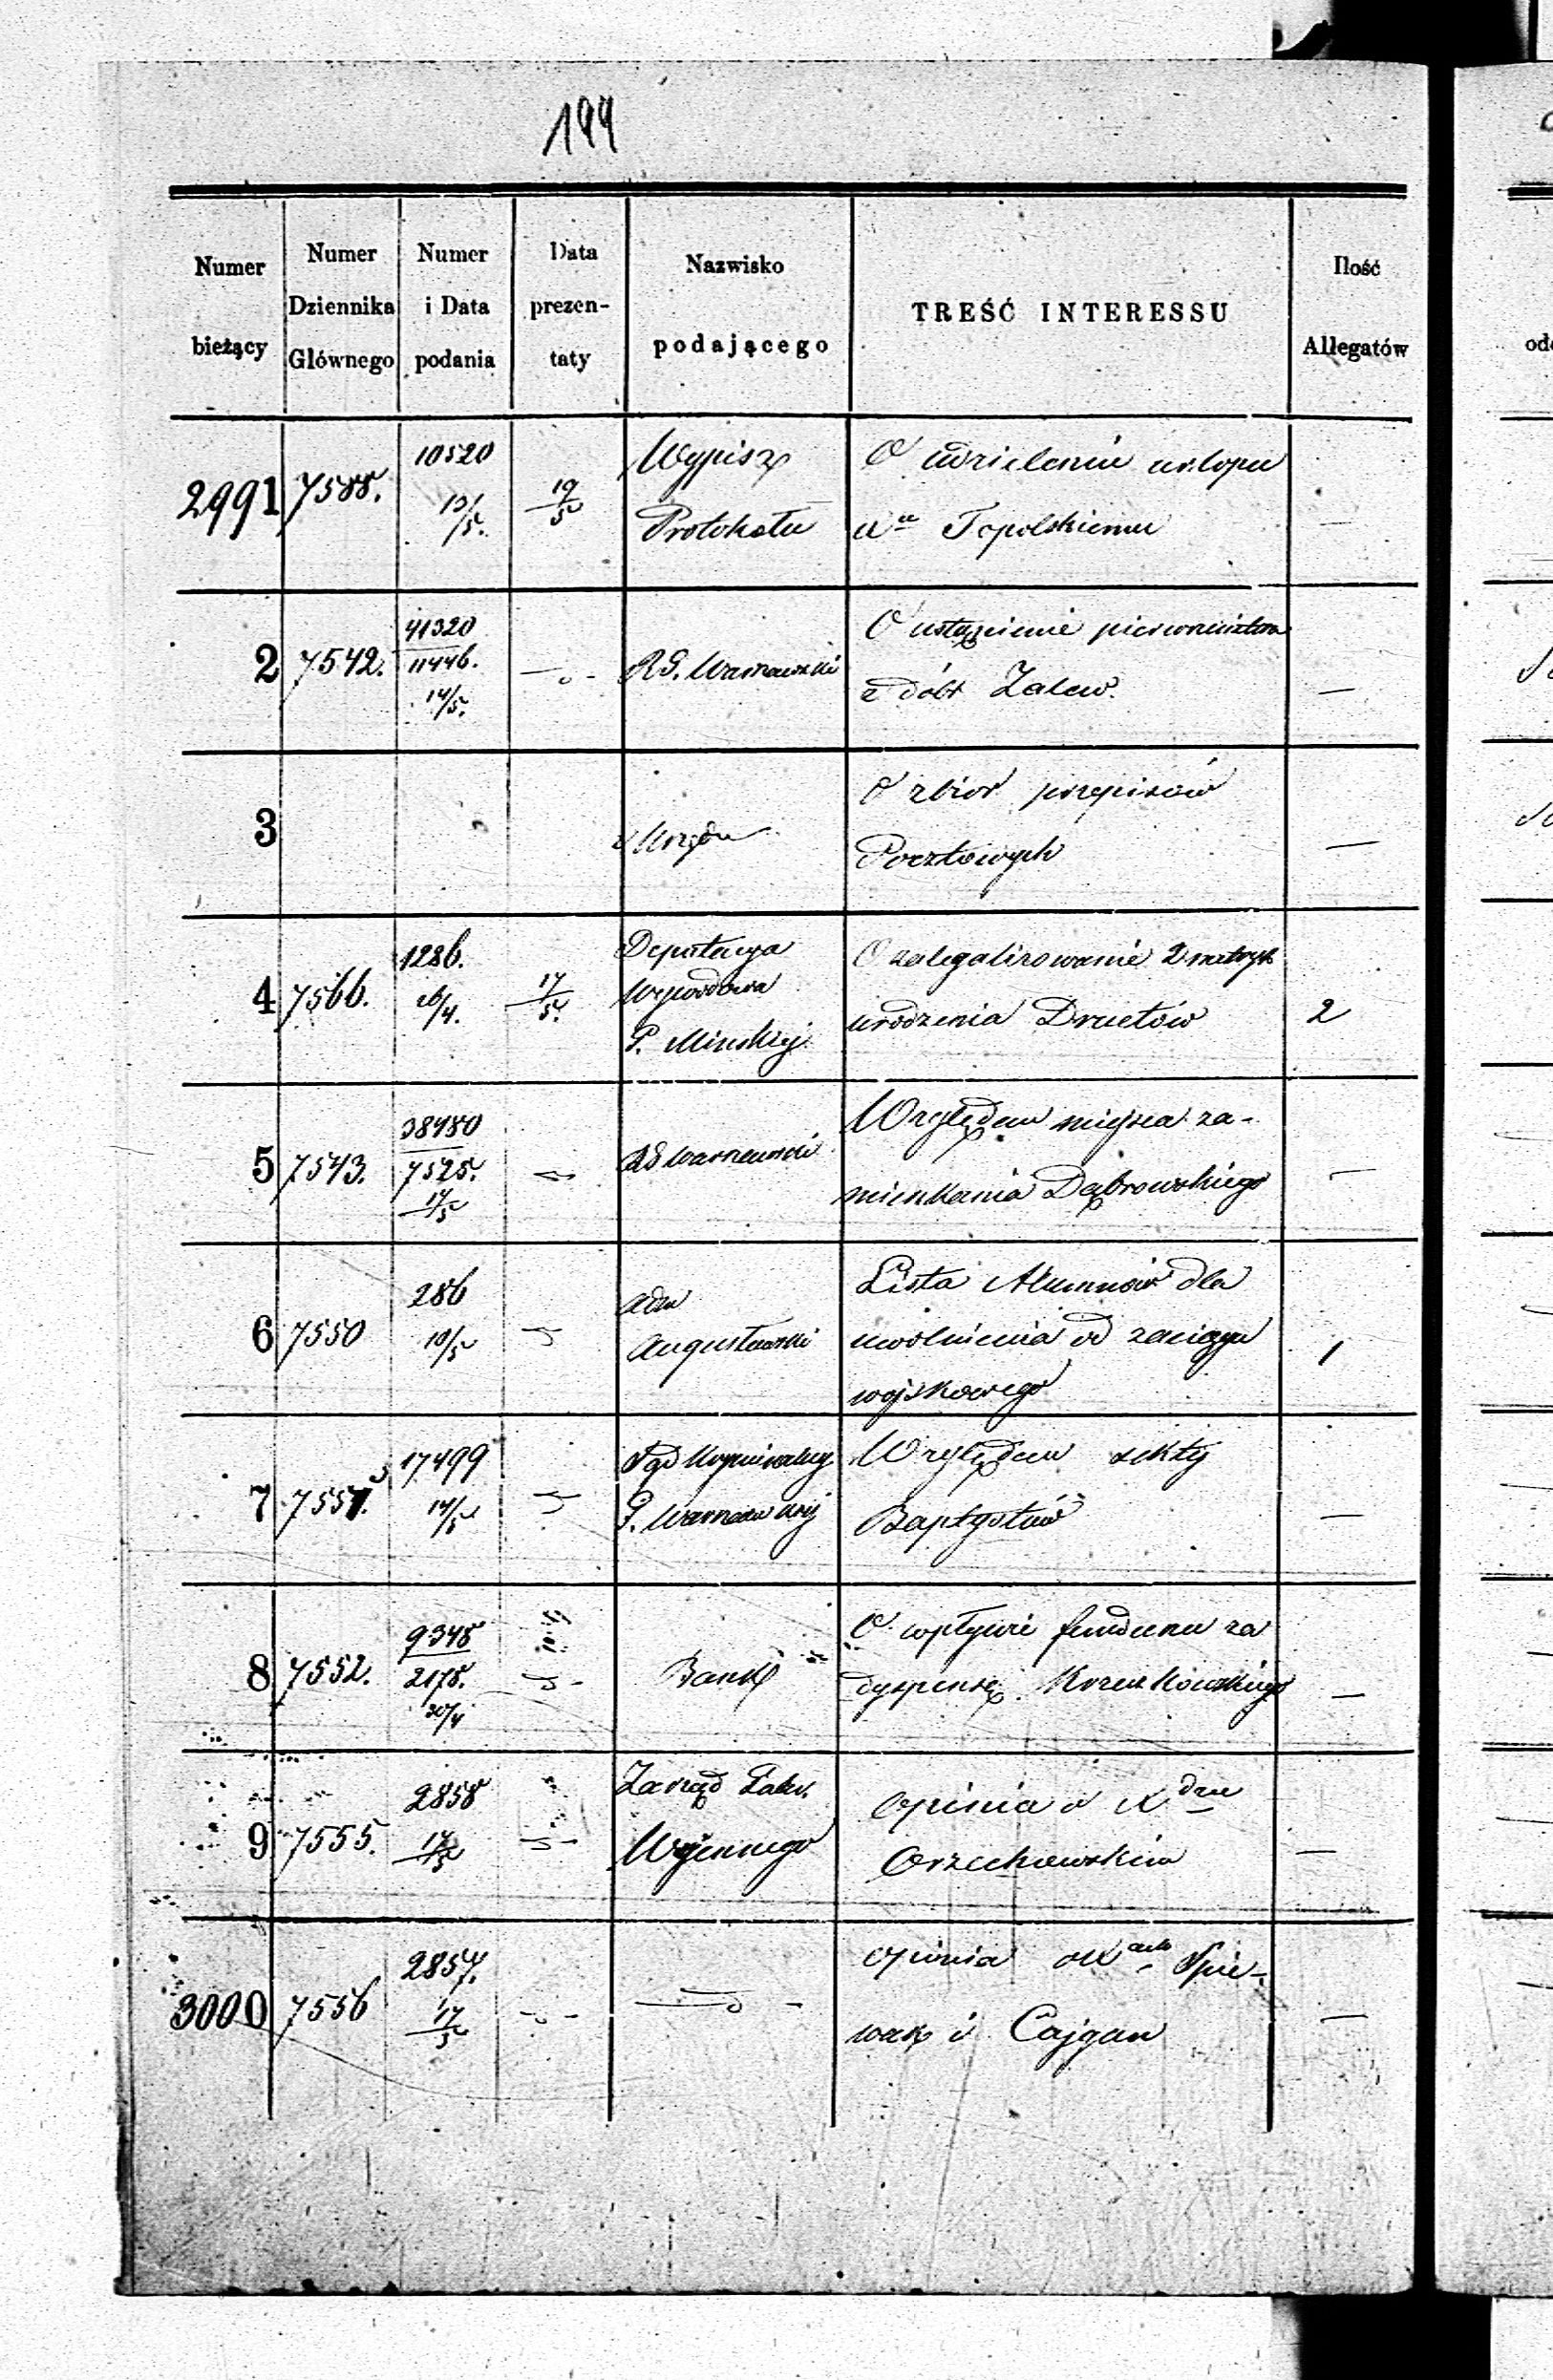 199
Numer bieżący | Numer Dziennika Głównego | Numer i Data podania | Data prezentaty | Nazwisko podającego | TREŚĆ INTERESSU | Ilość Allegatów
2991 | 7588. | 10520 13/5. | 19/5 | Wypis z Protokołu | O udzieleniu urlopu Topolskiemu | —
2 | 7542. | 41320 11446. 14/5. | —„— | R.G. Warszawski | O ustąpienie pierwszeństwa z dóbr Zalew. | —
3 | | | | z Urzędu | O zbiór przepisów Pocztowych | —
4 | 7566. | 1286. 26/4. | 17/5. | Deputacya Wywodowa G. Minskiej | O zalegalizowanie 2 metryk urodzenia Druetów | 2
5 | 7543. | 38480 7525. 17/5 | —„— | R.G. Warszawski | Względem miejsca zamieszkania Dąbrowskiego | —
6 | 7550 | 286 10/5 | —„— | Adm Augustowski | Lista Alumnów dla uwolnienia od zaciągu wojskowego | 1
7 | 7551. | 17499 14/5 | —„— | Sąd Kryminalny G. Warszawskiej | Względem sekty Baptystów | —
8 | 7552. | 9348 2178. 30/4 | —„— | Bank | O wpływie funduszu za dyspensę | —
9 | 7555. | 2858 17/5 | —„— | Zarząd Wojennego | Opinia o Xdzu Orzechowskim | —
3000 | 7556 | 2857. 17/5 | —„— | —„— | Opinia o Spiewak i Cajgan | —